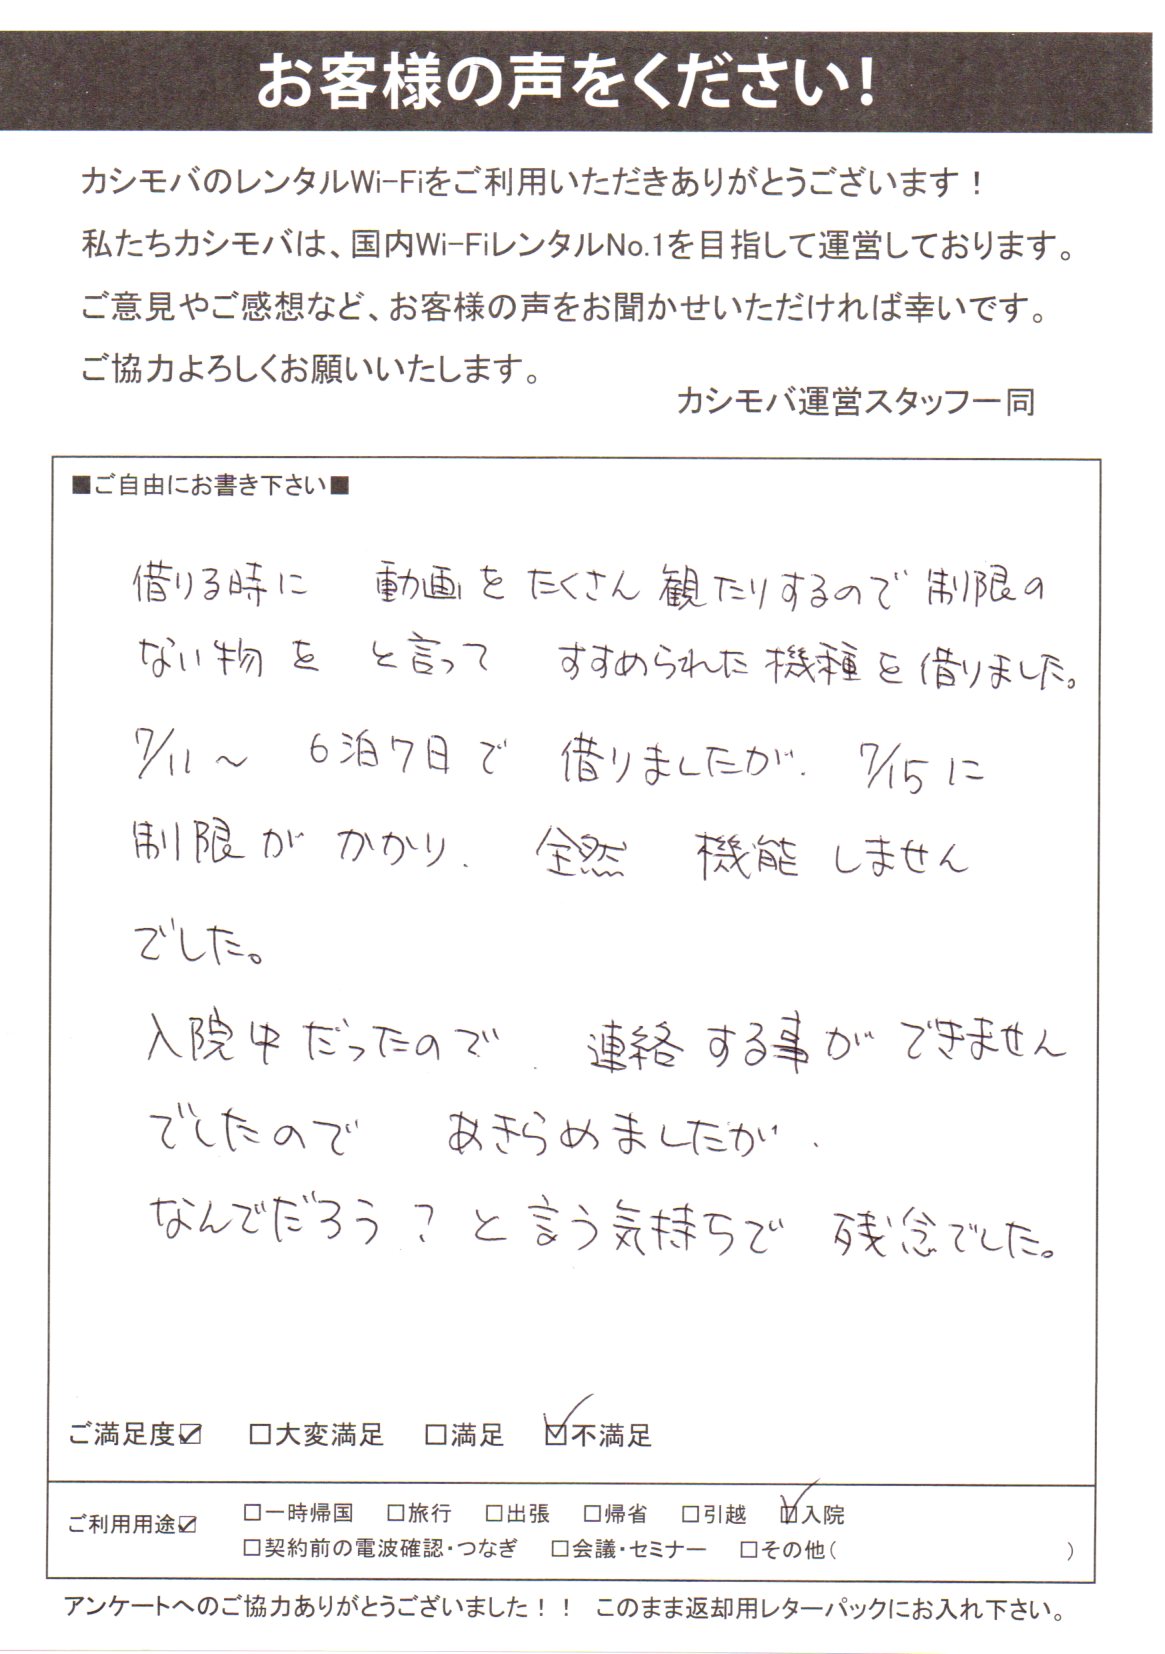 お客様の声をください!
カシモバのレンタルWi-Fiをご利用いただきありがとうございます!
私たちカシモバは、国内Wi-FiレンタルNo.1を目指して運営しております。
ご意見やご感想など、お客様の声をお聞かせいただければ幸いです。
ご協力よろしくお願いいたします。
カシモバ運営スタッフ一同
■ご自由にお書き下さい■
借りる時に 動画をたくさん観たりするので制限の
ない物を と言って すすめられた機種を借りました。
7/11〜 6泊7日で 借りましたが、7/15に
制限がかかり、全然 機能しません
でした。
入院中だったので、連絡する事ができません
でしたので あきらめましたが、
なんでだろう?と言う気持ちで 残念でした。
ご満足度☑ □大変満足 □満足 ☑不満足
ご利用用途☑ □一時帰国 □旅行 □出張 □帰省 □引越 ☑入院
□契約前の電波確認・つなぎ □会議・セミナー □その他( )
アンケートへのご協力ありがとうございました!! このまま返却用レターパックにお入れ下さい。